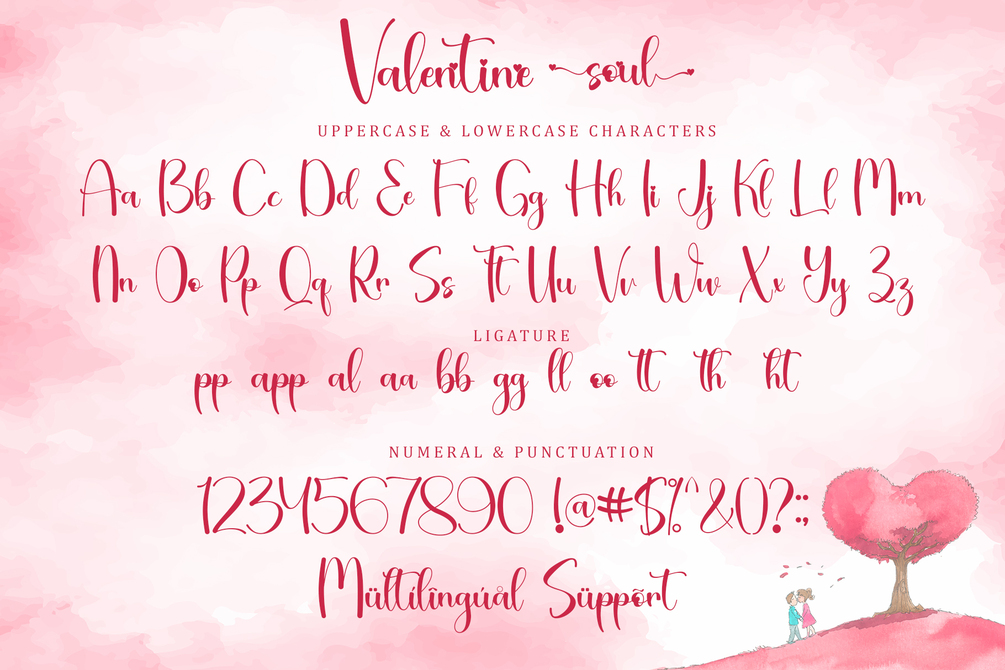 Valentine soul
UPPERCASE & LOWERCASE CHARACTERS
Aa Bb Cc Dd Ee Ff Gg Hh Ii Jj Kk Ll Mm
Nn Oo Pp Qq Rr Ss Tt Uu Vv Ww Xx Yy Zz
LIGATURE
pp app al aa bb gg ll oo tt th ht
NUMERAL & PUNCTUATION
1234567890 !@#$%^&()?:;
Mültilîngúål Süppõrt